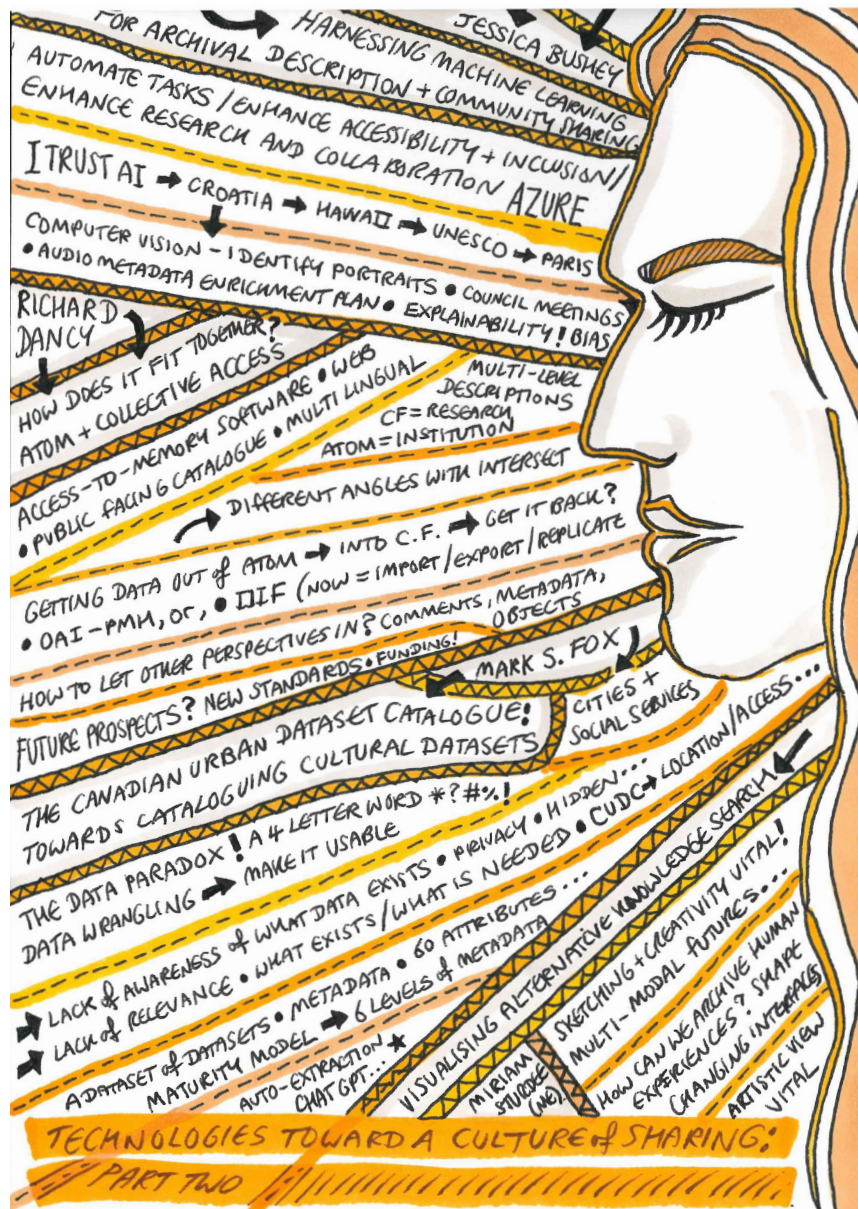 JESSICA BUSHEY
HARNESSING MACHINE LEARNING
FOR ARCHIVAL DESCRIPTION + COMMUNITY SHARING
AUTOMATE TASKS / ENHANCE ACCESSIBILITY + INCLUSION /
ENHANCE RESEARCH AND COLLABORATION AZURE
I TRUST AI → CROATIA → HAWAII → UNESCO → PARIS
COMPUTER VISION - IDENTIFY PORTRAITS • COUNCIL MEETINGS
• AUDIO METADATA ENRICHMENT PLAN • EXPLAINABILITY! BIAS
RICHARD
DANCY
HOW DOES IT FIT TOGETHER?
ATOM + COLLECTIVE ACCESS
ACCESS-TO-MEMORY SOFTWARE • WEB
• PUBLIC FACING CATALOGUE • MULTI LINGUAL
MULTI-LEVEL
DESCRIPTIONS
CF = RESEARCH
ATOM = INSTITUTION
→ DIFFERENT ANGLES WITH INTERSECT
GETTING DATA OUT of ATOM → INTO C.F. → GET IT BACK?
• OAI-PMH, or, • IIIF (NOW = IMPORT/EXPORT/REPLICATE
HOW TO LET OTHER PERSPECTIVES IN? COMMENTS, METADATA,
OBJECTS
FUTURE PROSPECTS? NEW STANDARDS • FUNDING!
MARK S. FOX
THE CANADIAN URBAN DATASET CATALOGUE:
TOWARDS CATALOGUING CULTURAL DATASETS
CITIES +
SOCIAL SERVICES
THE DATA PARADOX! A 4 LETTER WORD *?#%!
DATA WRANGLING → MAKE IT USABLE
→ LACK of AWARENESS of WHAT DATA EXISTS • PRIVACY • HIDDEN...
→ LACK of RELEVANCE • WHAT EXISTS / WHAT IS NEEDED • CUDC → LOCATION/ACCESS...
A DATASET OF DATASETS • METADATA • 60 ATTRIBUTES...
MATURITY MODEL → 6 LEVELS of METADATA
AUTO-EXTRACTION ★
CHAT GPT...
VISUALISING ALTERNATIVE KNOWLEDGE SEARCH
MIRIAM
STURDEE
(ME).
SKETCHING + CREATIVITY VITAL!
MULTI-MODAL FUTURES...
HOW CAN WE ARCHIVE HUMAN
EXPERIENCES? SHAPE
CHANGING INTERFACES
ARTISTIC VIEW
VITAL
TECHNOLOGIES TOWARD A CULTURE of SHARING:
PART TWO